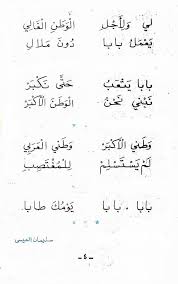 لِي وَلِأَجْلِ الْوَطَنِ الْغَالِي
يَعْمَلُ بَابَا دُونَ مَلَالِ
بَابَا يَتْعَبُ حَتَّى نَكْبَرْ
نَبْنِي نَحْنُ الْوَطَنَ الْأَكْبَرْ
وَطَنِي الْأَكْبَرْ وَطَنِي الْعَرَبِي
لَمْ يَسْتَسْلِمْ لِلْمُغْتَصِبِ
بَابَا ، بَابَا يَوْمُكَ طَابَا
سليمان العيسى
- ٤ -